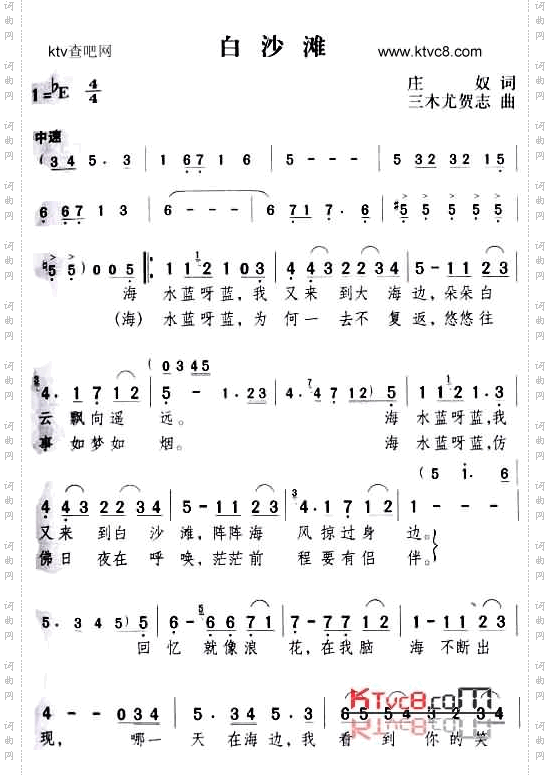 ktv查吧网
白沙滩
www.ktvc8.com
1=♭E 4/4
庄 奴 词
三木尤贺志 曲
中速
(3 4 5 . 3 | 1 6 7 1 6 | 5 - - - | 5 3 2 3 2 1 5
6 6 7 1 3 | 6 - - - | 6 - 7 1 7 . 6 | #5 5 5 5
♮5 5) 0 0 5 |: 1 1 2 1 0 3 | 4 4 3 2 3 4 | 5 - 1 1 2 3
海 水蓝呀蓝,我 又来 到大 海边,朵朵白
(海) 水蓝呀蓝,为 何一 去不 复返,悠悠往
(0 3 4 5
4 . 1 7 1 2 | 5 - 1 . 2 3 | 4 . 4 7 1 2) 5 | 1 1 2 1 . 3
云 飘向遥 远。 海 水蓝呀蓝,我
事 如梦如 烟。 海 水蓝呀蓝,仿
(5 1 . 6
4 4 3 2 2 3 4 | 5 - 1 1 2 3 | 4 . 1 7 1 2 | 1 - - -
又来 到白 沙滩,阵阵海 风掠过身 边。
佛日 夜在 呼唤,茫茫前 程要有侣 伴。
5 . 3 4 5) 5 | 6 - 6 6 7 1 | 7 - 7 7 1 2 | 1 - 0 2 3 4
回 忆 就像浪 花,在我脑 海 不断出
4 - - 0 3 4 | 5 - 5 5 1 2 3 | 6 5 5 0 4 3 4
现, 哪一 天 在海边,我 看 到 你的笑
KTvc8.com
词曲网